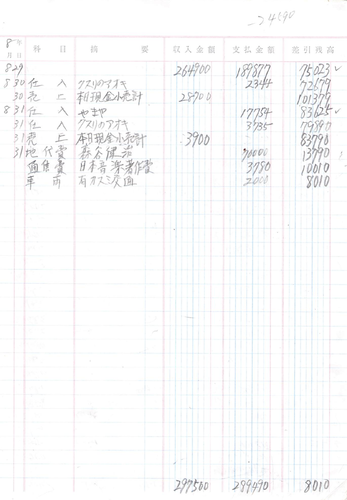 24590
8年
月 日 科 目 摘 要 収入金額 支払金額 差引残高
8 29 264900 189877 75023
8 30 仕入 クスリのアオキ 2344 72679
30 売上 本日現金小売計 28700 101379
8 31 仕入 やまや 17754 83625
31 仕入 クスリのアオキ 3735 79890
31 売上 本日現金小売計 3900 83790
31 地代 70000 13790
通信費 日本音楽著作 3780 10010
車両 2000 8010
297500 289490 8010